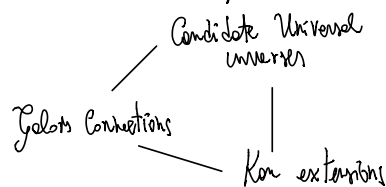 Candidate Universal
inverses
Galois Connections
Kan extensions